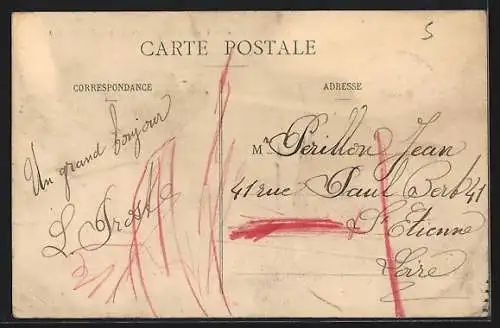 5
CARTE POSTALE
CORRESPONDANCE
ADRESSE
Un grand bonjour
L. Prost
Mr Perillon Jean
41 rue Paul Bert 41
à St Etienne
Loire